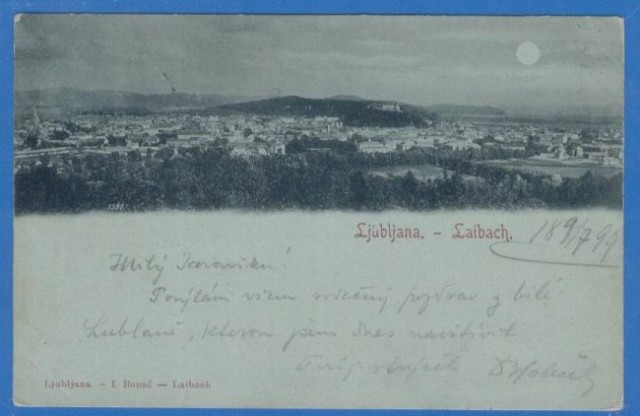 1397
Ljubljana. – Laibach.
189/7 99
Milý
Posýlám vám srdečný pozdrav z bílé
Lublaně, kterou jsem dnes navštívil
Ljubljana – I. Bonač — Laibach